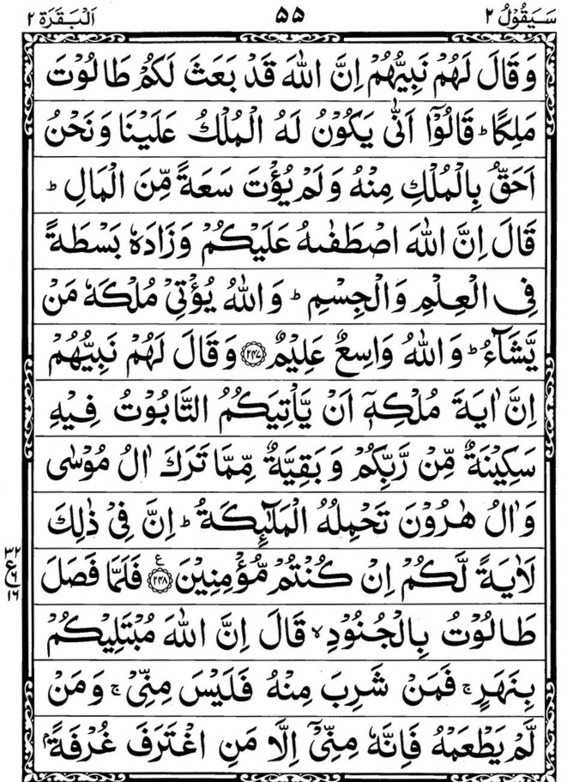 سَيَقُوْلُ ٢ ۵۵ اَلْبَقَرَة ٢
وَقَالَ لَهُمْ نَبِيُّهُمْ اِنَّ اللّٰهَ قَدْ بَعَثَ لَكُمْ طَالُوْتَ
مَلِكًا ؕ قَالُوْۤا اَنّٰى يَكُوْنُ لَهُ الْمُلْكُ عَلَيْنَا وَنَحْنُ
اَحَقُّ بِالْمُلْكِ مِنْهُ وَلَمْ يُؤْتَ سَعَةً مِّنَ الْمَالِ ؕ
قَالَ اِنَّ اللّٰهَ اصْطَفٰىهُ عَلَيْكُمْ وَزَادَهٗ بَسْطَةً
فِى الْعِلْمِ وَالْجِسْمِ ؕ وَاللّٰهُ يُؤْتِىْ مُلْكَهٗ مَنْ
يَّشَآءُ ؕ وَاللّٰهُ وَاسِعٌ عَلِيْمٌ ﴿۲۴۷﴾ وَقَالَ لَهُمْ نَبِيُّهُمْ
اِنَّ اٰيَةَ مُلْكِهٖۤ اَنْ يَّاْتِيَكُمُ التَّابُوْتُ فِيْهِ
سَكِيْنَةٌ مِّنْ رَّبِّكُمْ وَبَقِيَّةٌ مِّمَّا تَرَكَ اٰلُ مُوْسٰى
وَاٰلُ هٰرُوْنَ تَحْمِلُهُ الْمَلٰٓئِكَةُ ؕ اِنَّ فِىْ ذٰلِكَ
لَاٰيَةً لَّكُمْ اِنْ كُنْتُمْ مُّؤْمِنِيْنَ ﴿۲۴۸﴾ فَلَمَّا فَصَلَ
طَالُوْتُ بِالْجُنُوْدِ ۙ قَالَ اِنَّ اللّٰهَ مُبْتَلِيْكُمْ
بِنَهَرٍ ۚ فَمَنْ شَرِبَ مِنْهُ فَلَيْسَ مِنِّىْ ۚ وَمَنْ
لَّمْ يَطْعَمْهُ فَاِنَّهٗ مِنِّىْۤ اِلَّا مَنِ اغْتَرَفَ غُرْفَةًۢ